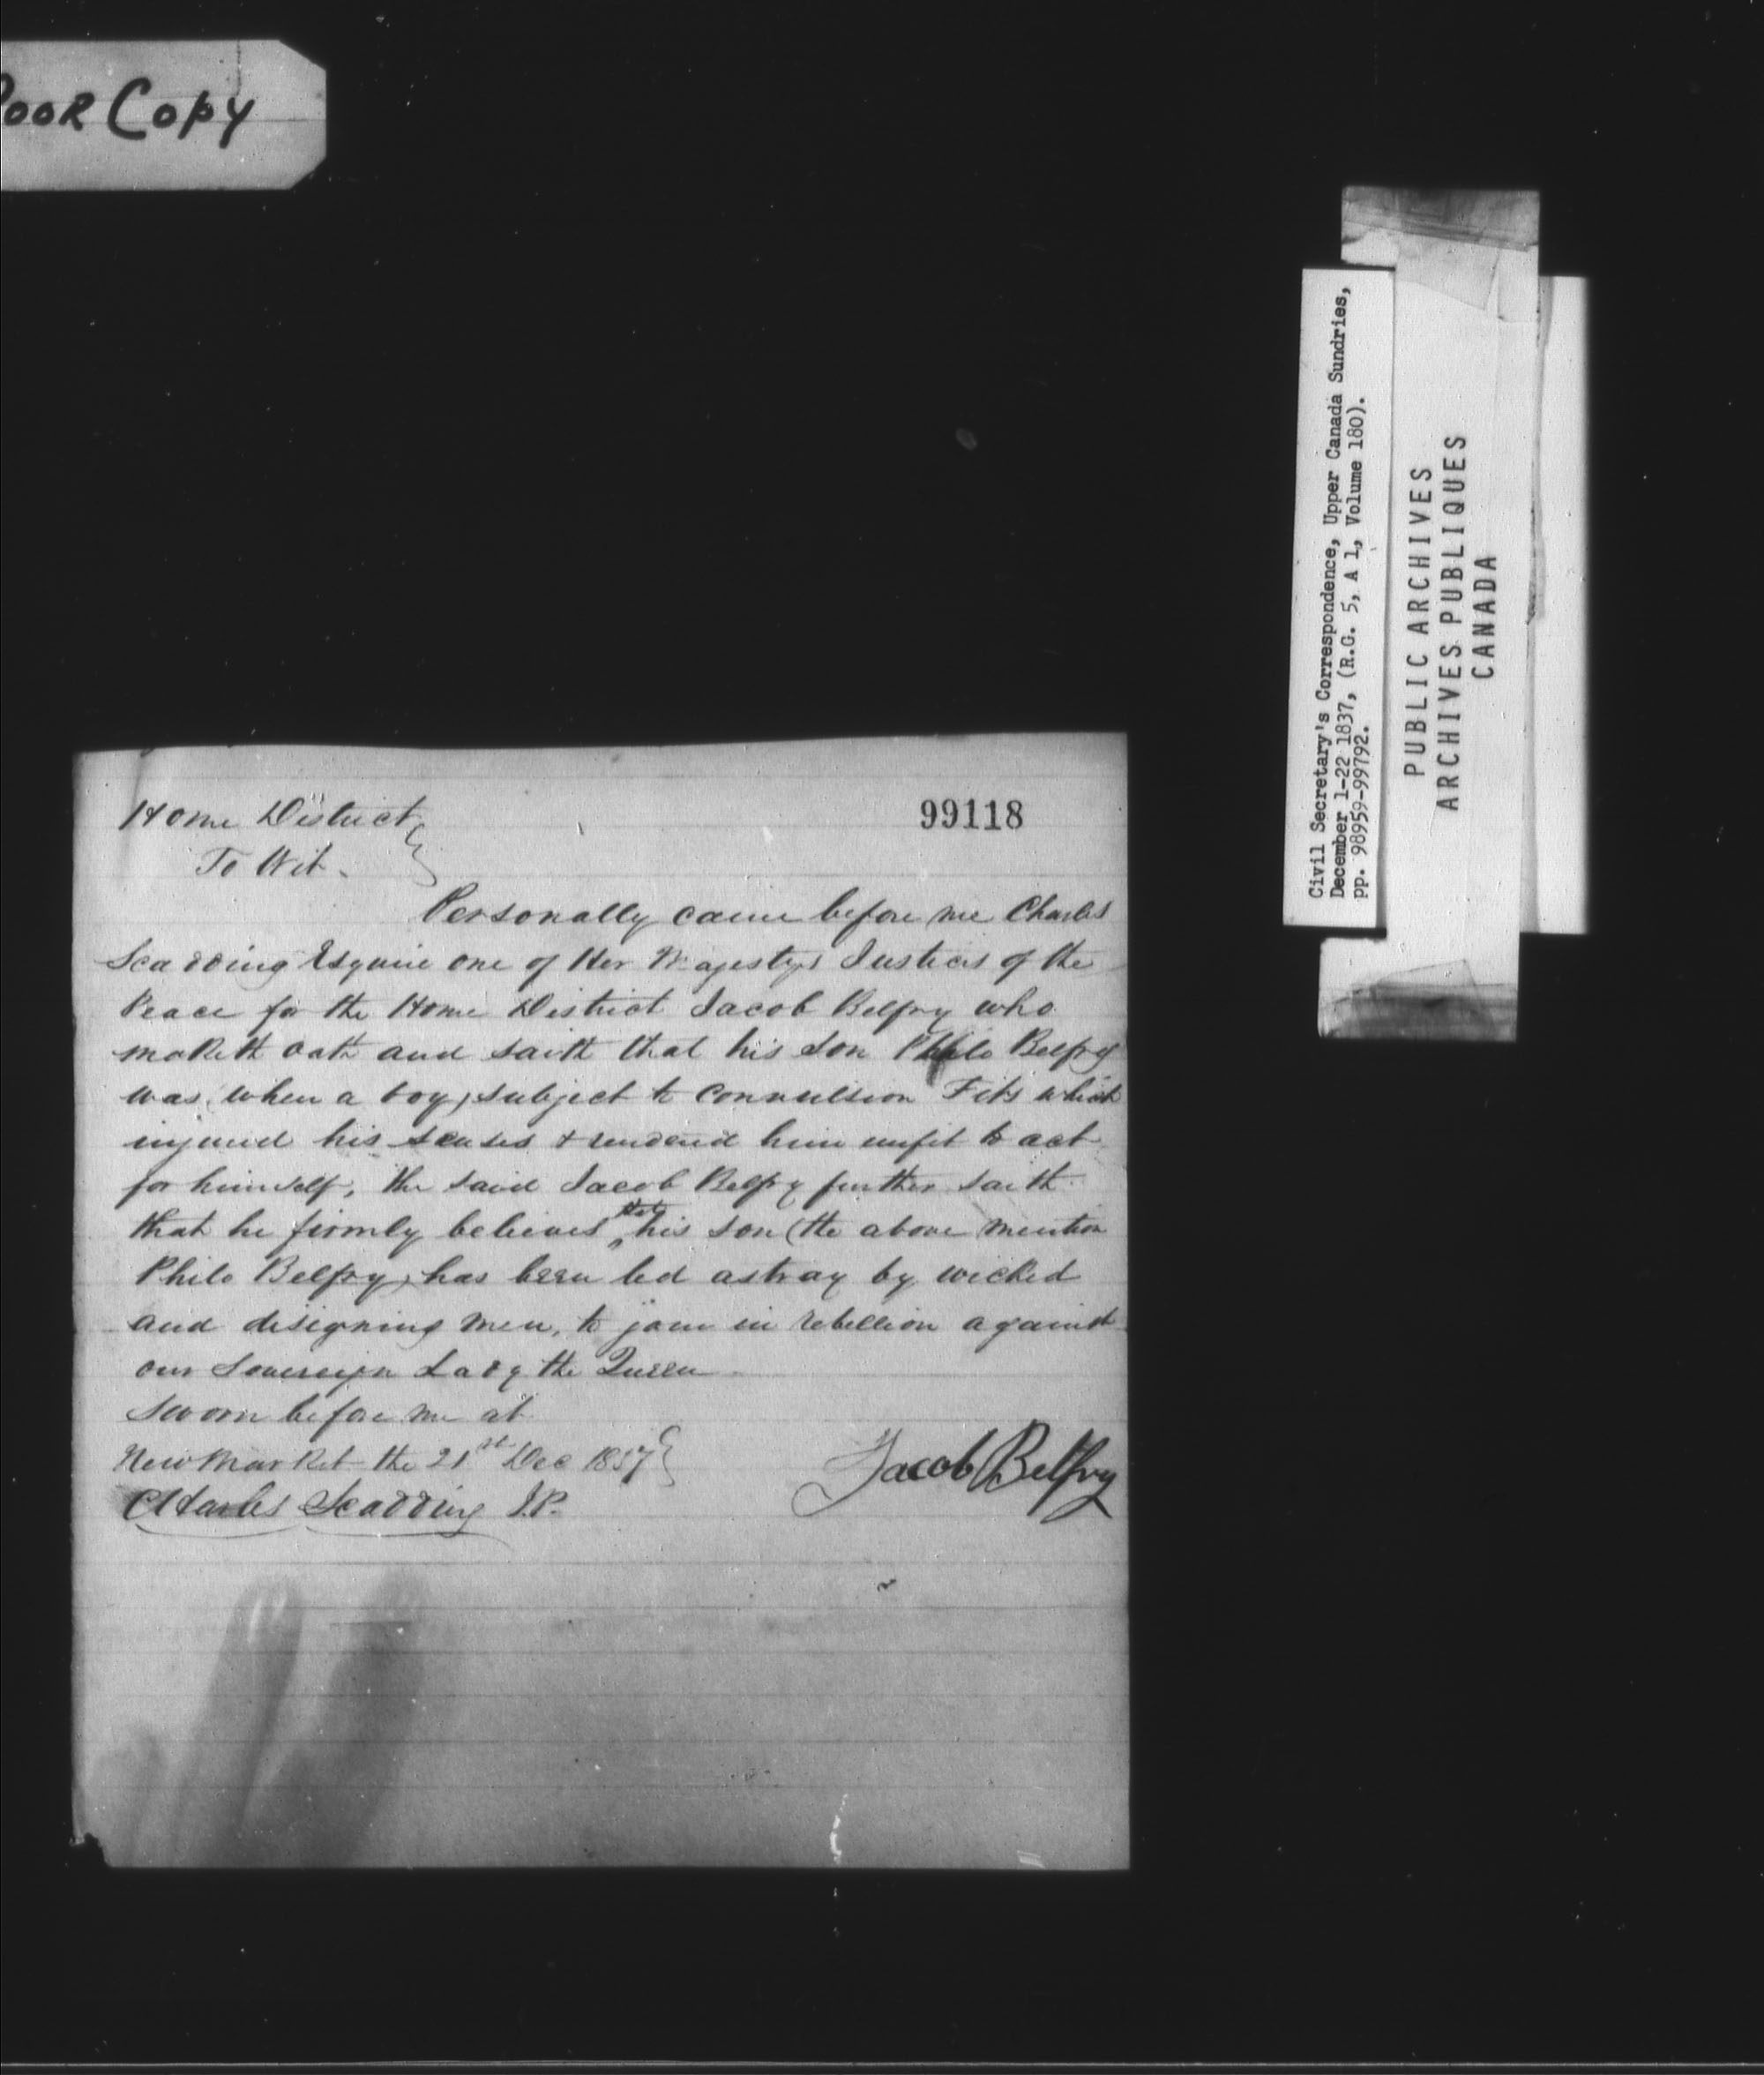 Poor Copy
Civil Secretary's Correspondence, Upper Canada Sundries,
December 1-22 1837, (R.G. 5, A 1, Volume 180).
pp. 98959-99792.
PUBLIC ARCHIVES
ARCHIVES PUBLIQUES
CANADA
99118
Home District
To Wit.
Personally came before me Charles
Scadding Esquire one of Her Majestys Justices of the
Peace for the Home District Jacob Belfry who
maketh oath and saith that his son Philo Belfry
was, when a boy, subject to convulsion Fits which
injured his senses & rendered him unfit to act
for himself, the said Jacob Belfry further saith
that he firmly believes that his son (the above mention
Philo Belfry) has been led astray by wicked
and disigning men, to join in rebellion against
our Sovereign Lady the Queen
Sworn before me at
New Market the 21st Dec 1837
Jacob Belfry
Charles Scadding J.P.